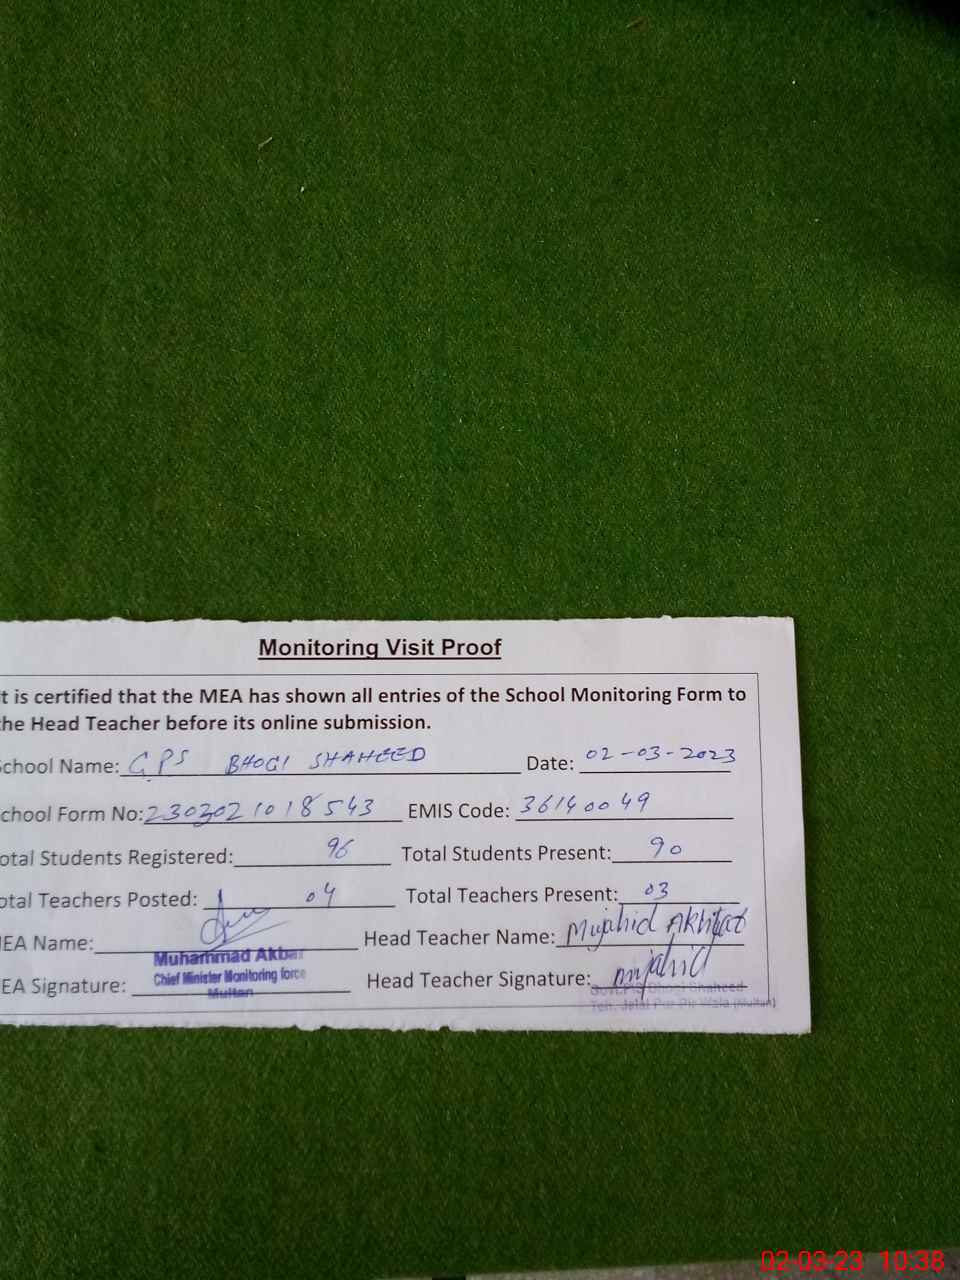 Monitoring Visit Proof
t is certified that the MEA has shown all entries of the School Monitoring Form to
the Head Teacher before its online submission.
School Name: GPS BHOGI SHAHEED Date: 02-03-2023
chool Form No: 230302 1018543 EMIS Code: 36140049
otal Students Registered: 96 Total Students Present: 90
otal Teachers Posted: 04 Total Teachers Present: 03
EA Name: Head Teacher Name: Mujahid Akhtar
Muhammad Akbar
Chief Minister Monitoring force
Multan
EA Signature: Head Teacher Signature: mjahid
Bhogi Shaheed
Teh. Jalal Pur Pir Wala (Multan)
02-03-23 10:38